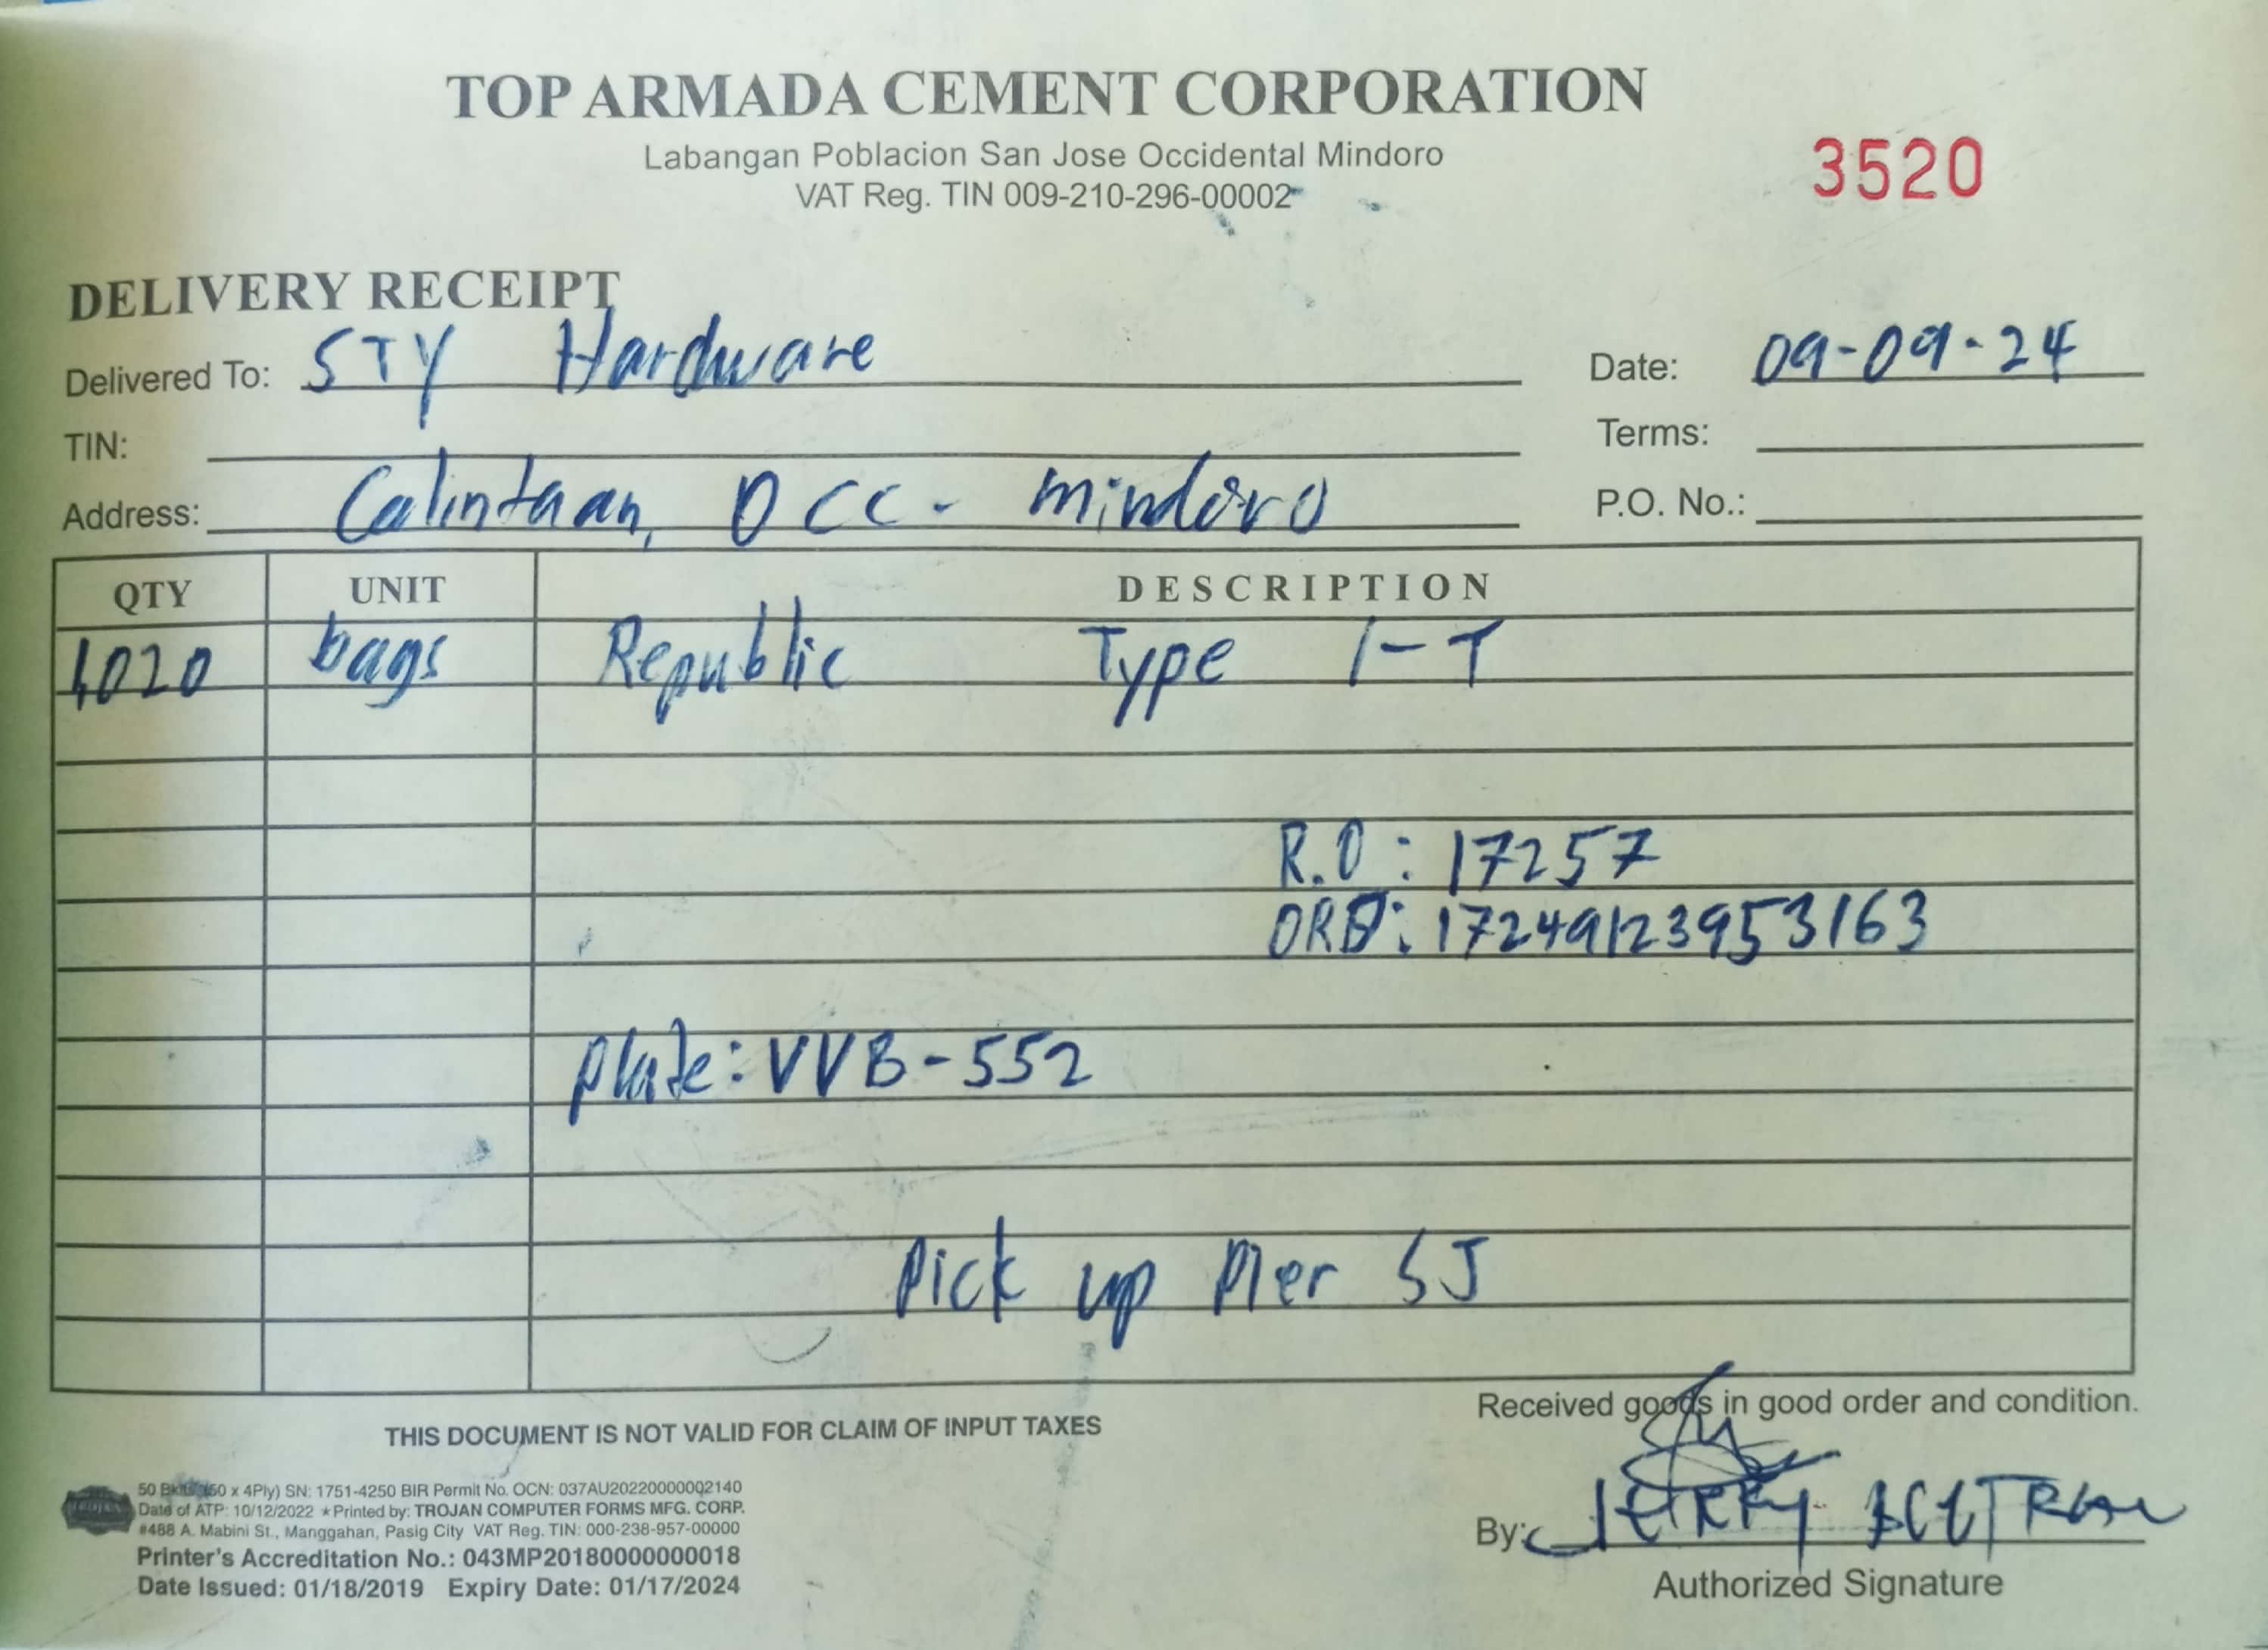 TOP ARMADA CEMENT CORPORATION
Labangan Poblacion San Jose Occidental Mindoro
VAT Reg. TIN 009-210-296-00002
3520
DELIVERY RECEIPT
Delivered To: STY Hardware
Date: 09-09-24
TIN:
Terms:
Address: Calintaan, Occ- Mindoro
P.O. No.:
QTY UNIT DESCRIPTION
1020 bags Republic Type 1-T
R.O: 17257
ORD: 17249123953163
plate: VVB-552
Pick up Pier SJ
THIS DOCUMENT IS NOT VALID FOR CLAIM OF INPUT TAXES
Received goods in good order and condition.
50 (50 x 4Ply) SN: 1751-4250 BIR Permit No. OCN: 037AU20220000002140
Date of ATP: 10/12/2022 ★Printed by: TROJAN COMPUTER FORMS MFG. CORP.
#488 A. Mabini St., Manggahan, Pasig City VAT Reg. TIN: 000-238-957-00000
Printer's Accreditation No.: 043MP20180000000018
Date Issued: 01/18/2019 Expiry Date: 01/17/2024
By: JERRY
Authorized Signature